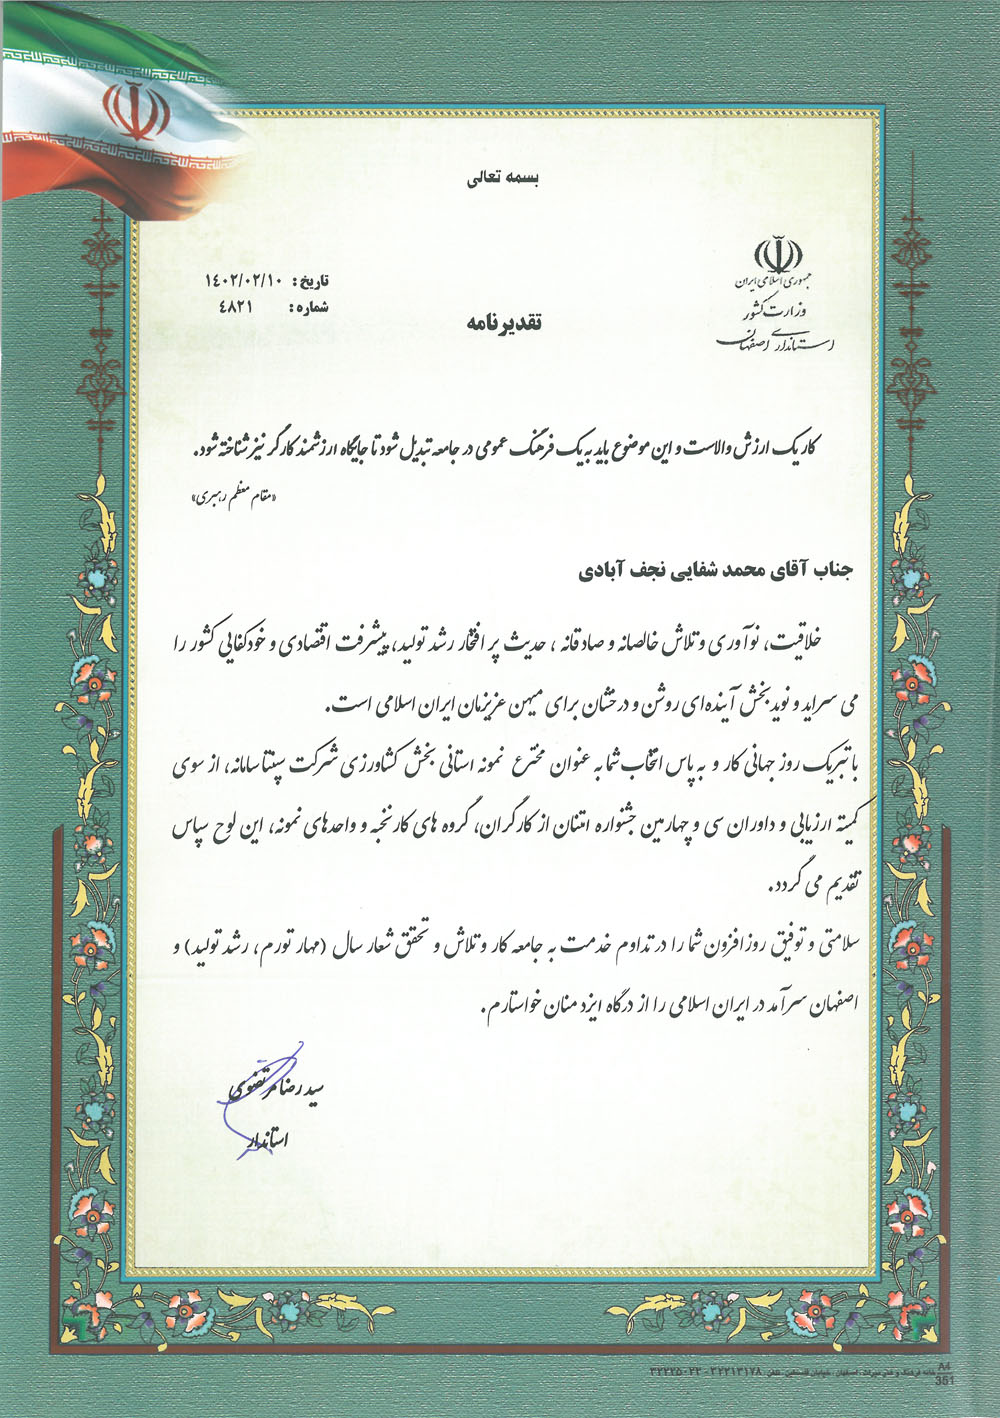 بسمه تعالی
جمهوری اسلامی ایران
وزارت کشور
استانداری اصفهان
تاریخ : ۱۴۰۲/۰۲/۱۰
شماره : ۴۸۲۱
تقدیرنامه
کار یک ارزش والاست و این موضوع باید به یک فرهنگ عمومی در جامعه تبدیل شود تا جایگاه ارزشمند کارگر نیز شناخته شود.
«مقام معظم رهبری»
جناب آقای محمد شفایی نجف آبادی
خلاقیت، نوآوری و تلاش خالصانه و صادقانه ، حدیث پر افتخار رشد تولید، پیشرفت اقتصادی و خودکفایی کشور را
می سراید و نوید بخش آینده‌ای روشن و درخشان برای میهن عزیزمان ایران اسلامی است.
با تبریک روز جهانی کار و به پاس انتخاب شما به عنوان مخترع نمونه استانی بخش کشاورزی شرکت سپنتا سامانه، از سوی
کمیته ارزیابی و داوران سی و چهارمین جشنواره امتنان از کارگران، گروه های کار نخبه و واحدهای نمونه، این لوح سپاس
تقدیم می گردد.
سلامتی و توفیق روز افزون شما را در تداوم خدمت به جامعه کار و تلاش و تحقق شعار سال (مهار تورم، رشد تولید) و
اصفهان سرآمد در ایران اسلامی را از درگاه ایزد منان خواستارم.
سید رضا مرتضوی
استاندار
خانه فرهنگ و هنر میراث ، اصفهان ، خیابان فلسطین ، تلفن ۳۲۲۱۳۱۷۸ - ۳۲۲۲۵۰۲۲
A4
351